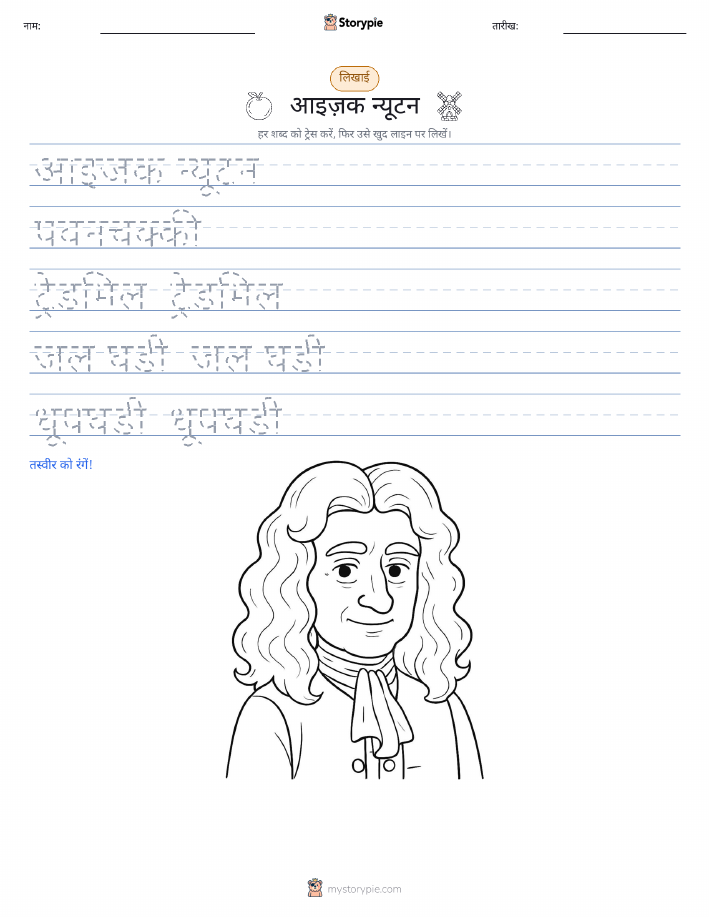 नाम:
Storypie
तारीख:
लिखाई
आइज़क न्यूटन
हर शब्द को ट्रेस करें, फिर उसे खुद लाइन पर लिखें।
आइजक न्यूटन
पवनचक्की
ट्रेडमिल ट्रेडमिल
जल घडी जल घडी
धूपघडी धूपघडी
तस्वीर को रंगें!
mystorypie.com